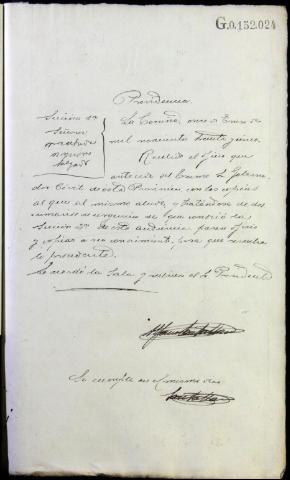 G.0.152.024
Providencia
Sección 2ª
Señores
La Coruña, once de Enero de
mil novecientos treinta y cinco.
Recibido el oficio que
antecede del Excmo. Sr. Gober
nador Civil de esta Provincia con las copias
al que el mismo alude, y tratándose de dos
sumarios de que conoció la
Sección 2ª de esta audiencia pasen oficio
y copias a su conocimiento, para que resuelva
lo procedente.
Lo acordó la Sala y rubrica el Sr. Presidente
Se cumple en el mismo día